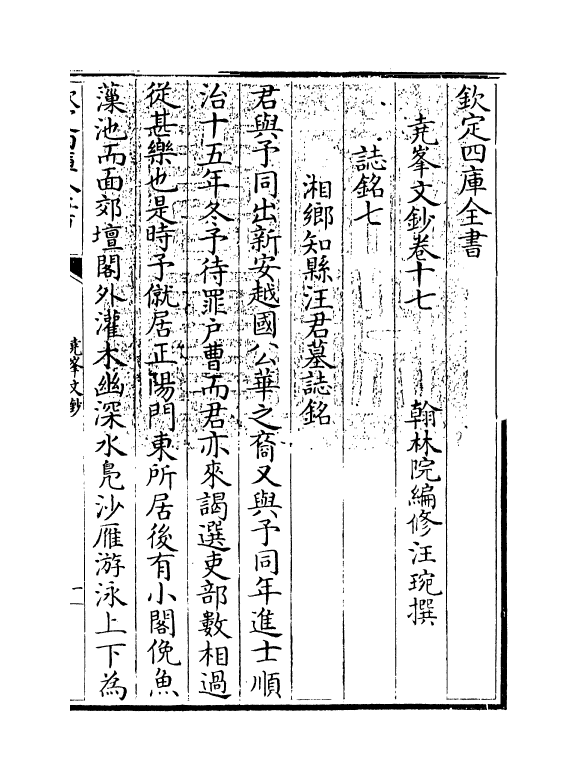 欽定四庫全書
堯峯文鈔卷十七　　翰林院編修汪琬撰
誌銘七
湘鄉知縣汪君墓誌銘
君與予同出新安越國公華之裔又與予同年進士順
治十五年冬予待罪户曹而君亦來謁選吏部數相過
從甚樂也是時予僦居正陽門東所居後有小閣俛魚
藻池而面郊壇閣外灌木幽深水鳬沙雁游泳上下為
堯峯文鈔